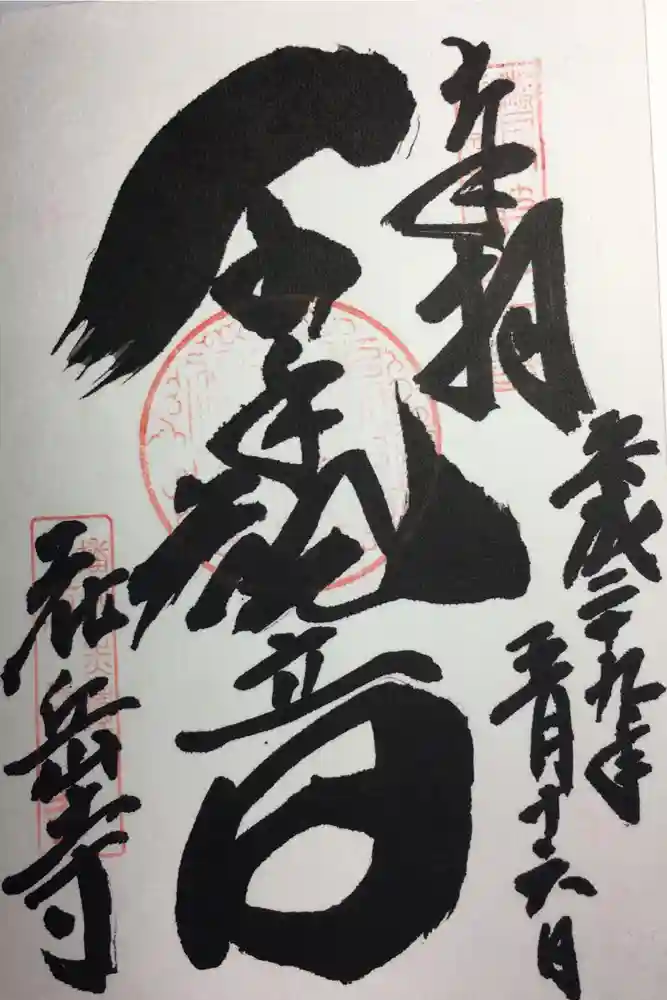 奉拝
平成二十九年
五月十六日
千手観音
花岳寺